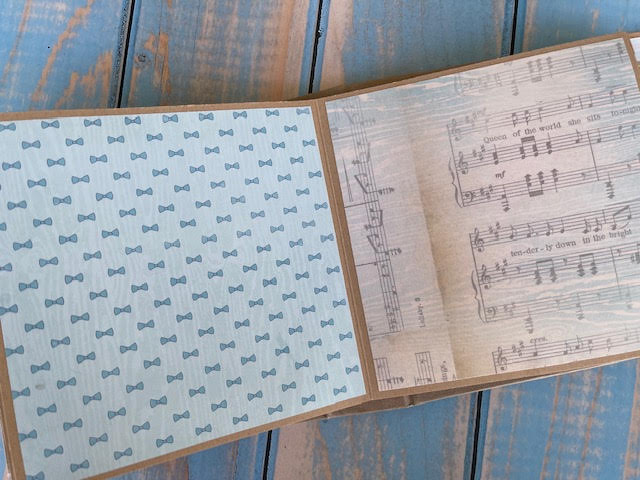 Queen of the world she sits
mf
ten-der-ly down in the bright
eyes,